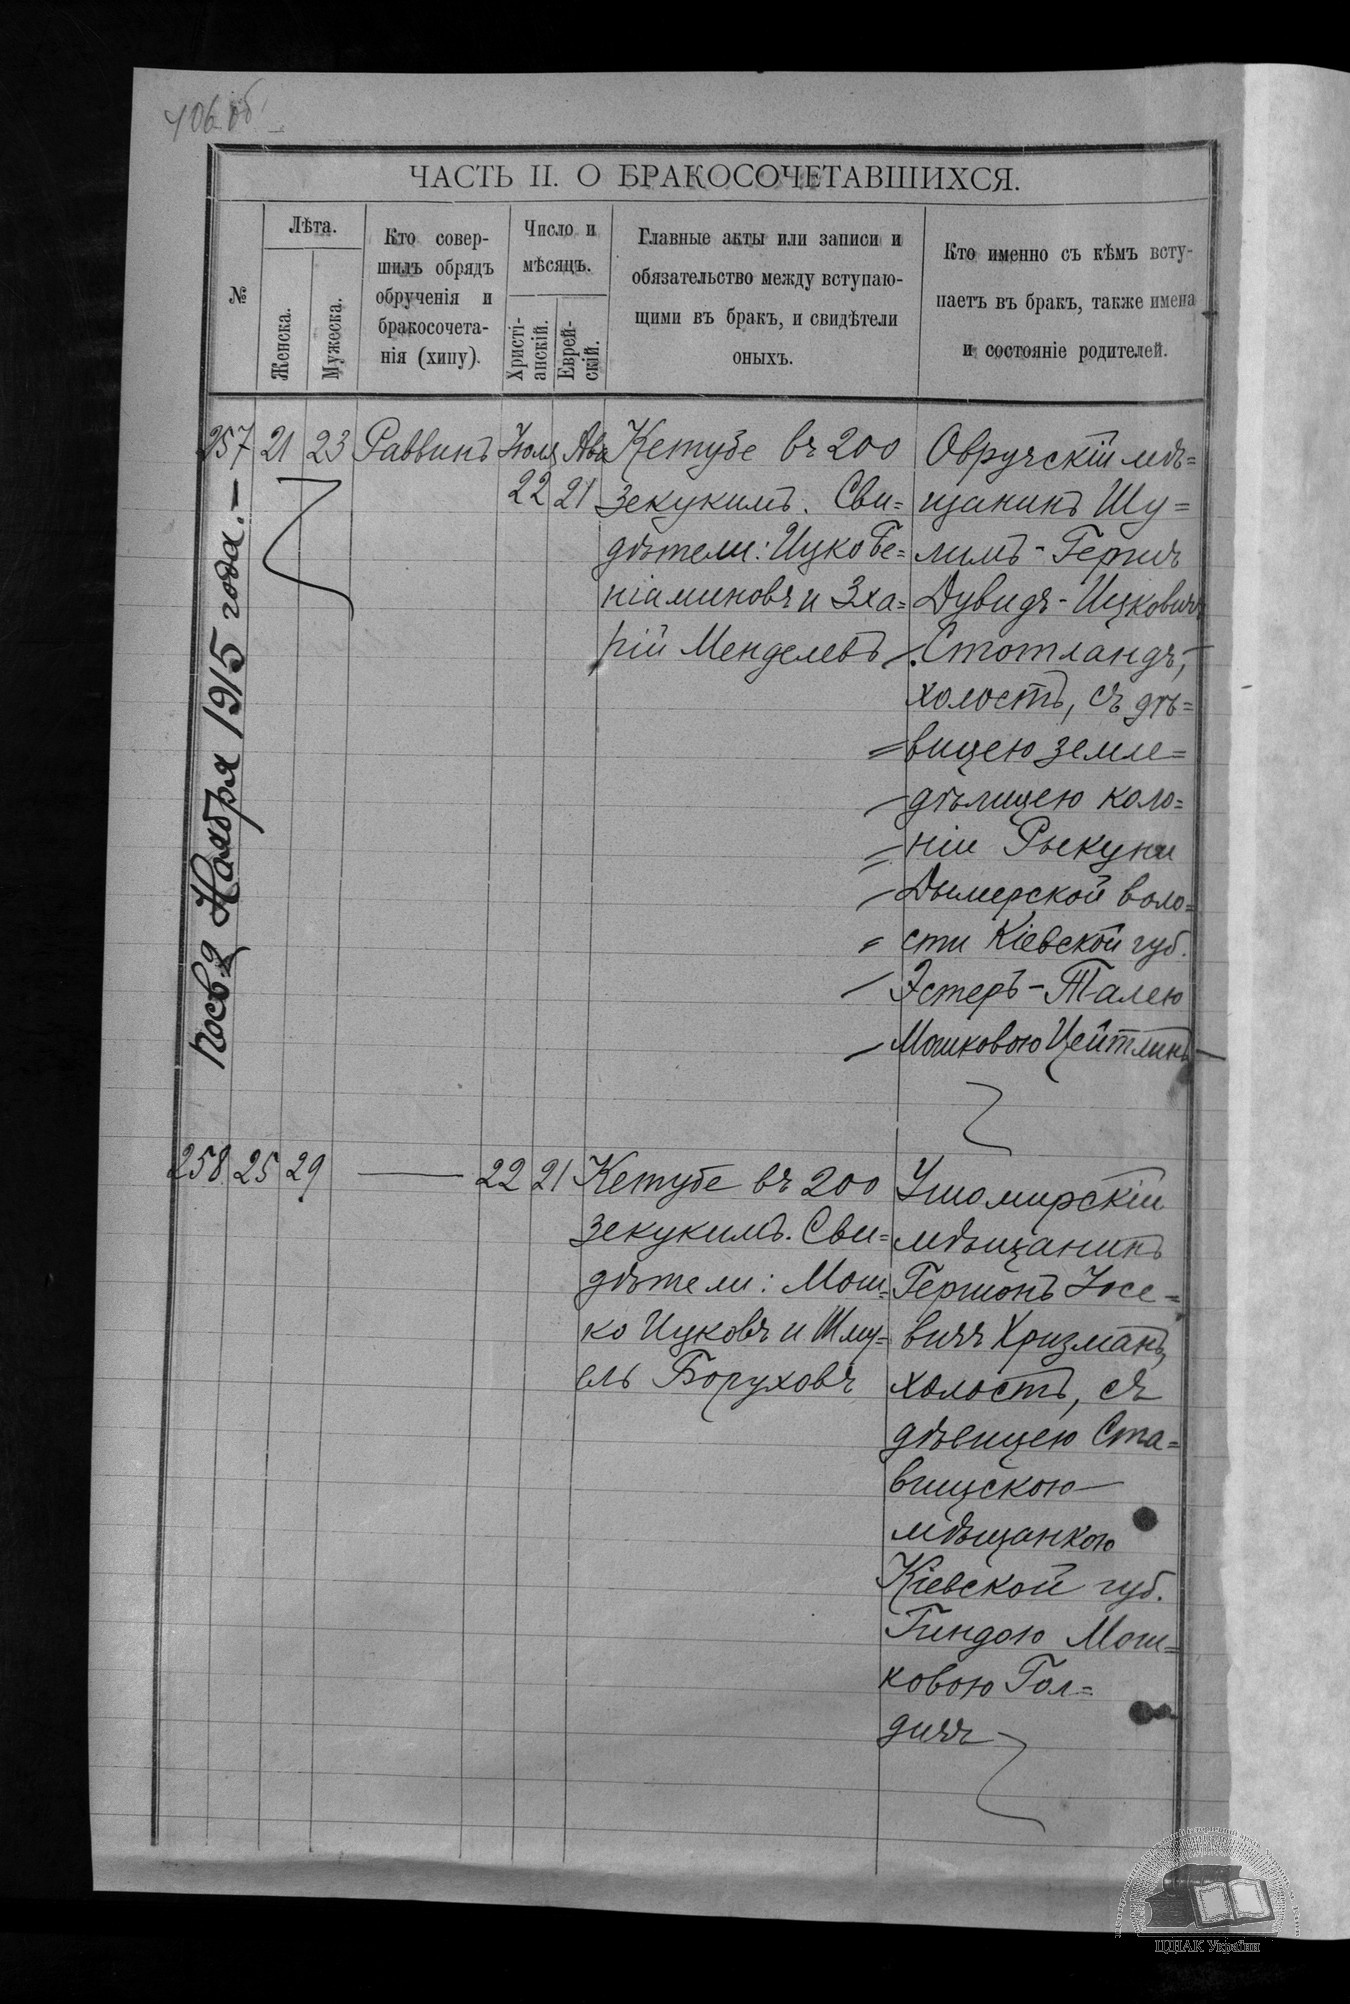 406 об.
ЧАСТЬ II. О БРАКОСОЧЕТАВШИХСЯ.
№
Лѣта.
Женска.
Мужеска.
Кто совер-
шилъ обрядъ
обрученія и
бракосочета-
нія (хипу).
Число и
мѣсяцъ.
Христі-
анскій.
Еврей-
скій.
Главные акты или записи и
обязательство между вступаю-
щими въ бракъ, и свидѣтели
оныхъ.
Кто именно съ кѣмъ всту-
паетъ въ бракъ, также имена
и состояніе родителей.
257 21 23 Раввинъ Іюля 22 Ава 21
Кетубе въ 200
зекукимъ. Сви=
дѣтели: Ицко Бе=
ніаминовъ и Зха=
рій Менделевъ
Овручскій мѣ=
щанинъ Шу=
лимъ-Гершъ
Дувидъ-Ицковичъ
Стотландъ,
холостъ, съ дѣ=
вицею земле=
дѣлицею коло=
ніи Рыкуни
Дымерской воло=
сти Кіевской губ.
Эстеръ-Талею
Мошковою Цейтлинъ
Ноября 1915 года.-
258 25 29 — 22 21
Кетубе въ 200
зекукимъ. Сви=
дѣтели: Мош=
ко Ицковъ и Шму=
ель Боруховъ
Ушомирскій
мѣщанинъ
Гершонъ Іосе=
вичъ Хризманъ,
холостъ, съ
дѣвицею Ста=
вищскою
мѣщанкою
Кіевской губ.
Гиндою Мош=
ковою Гол=
дичъ
ЦДІАК України